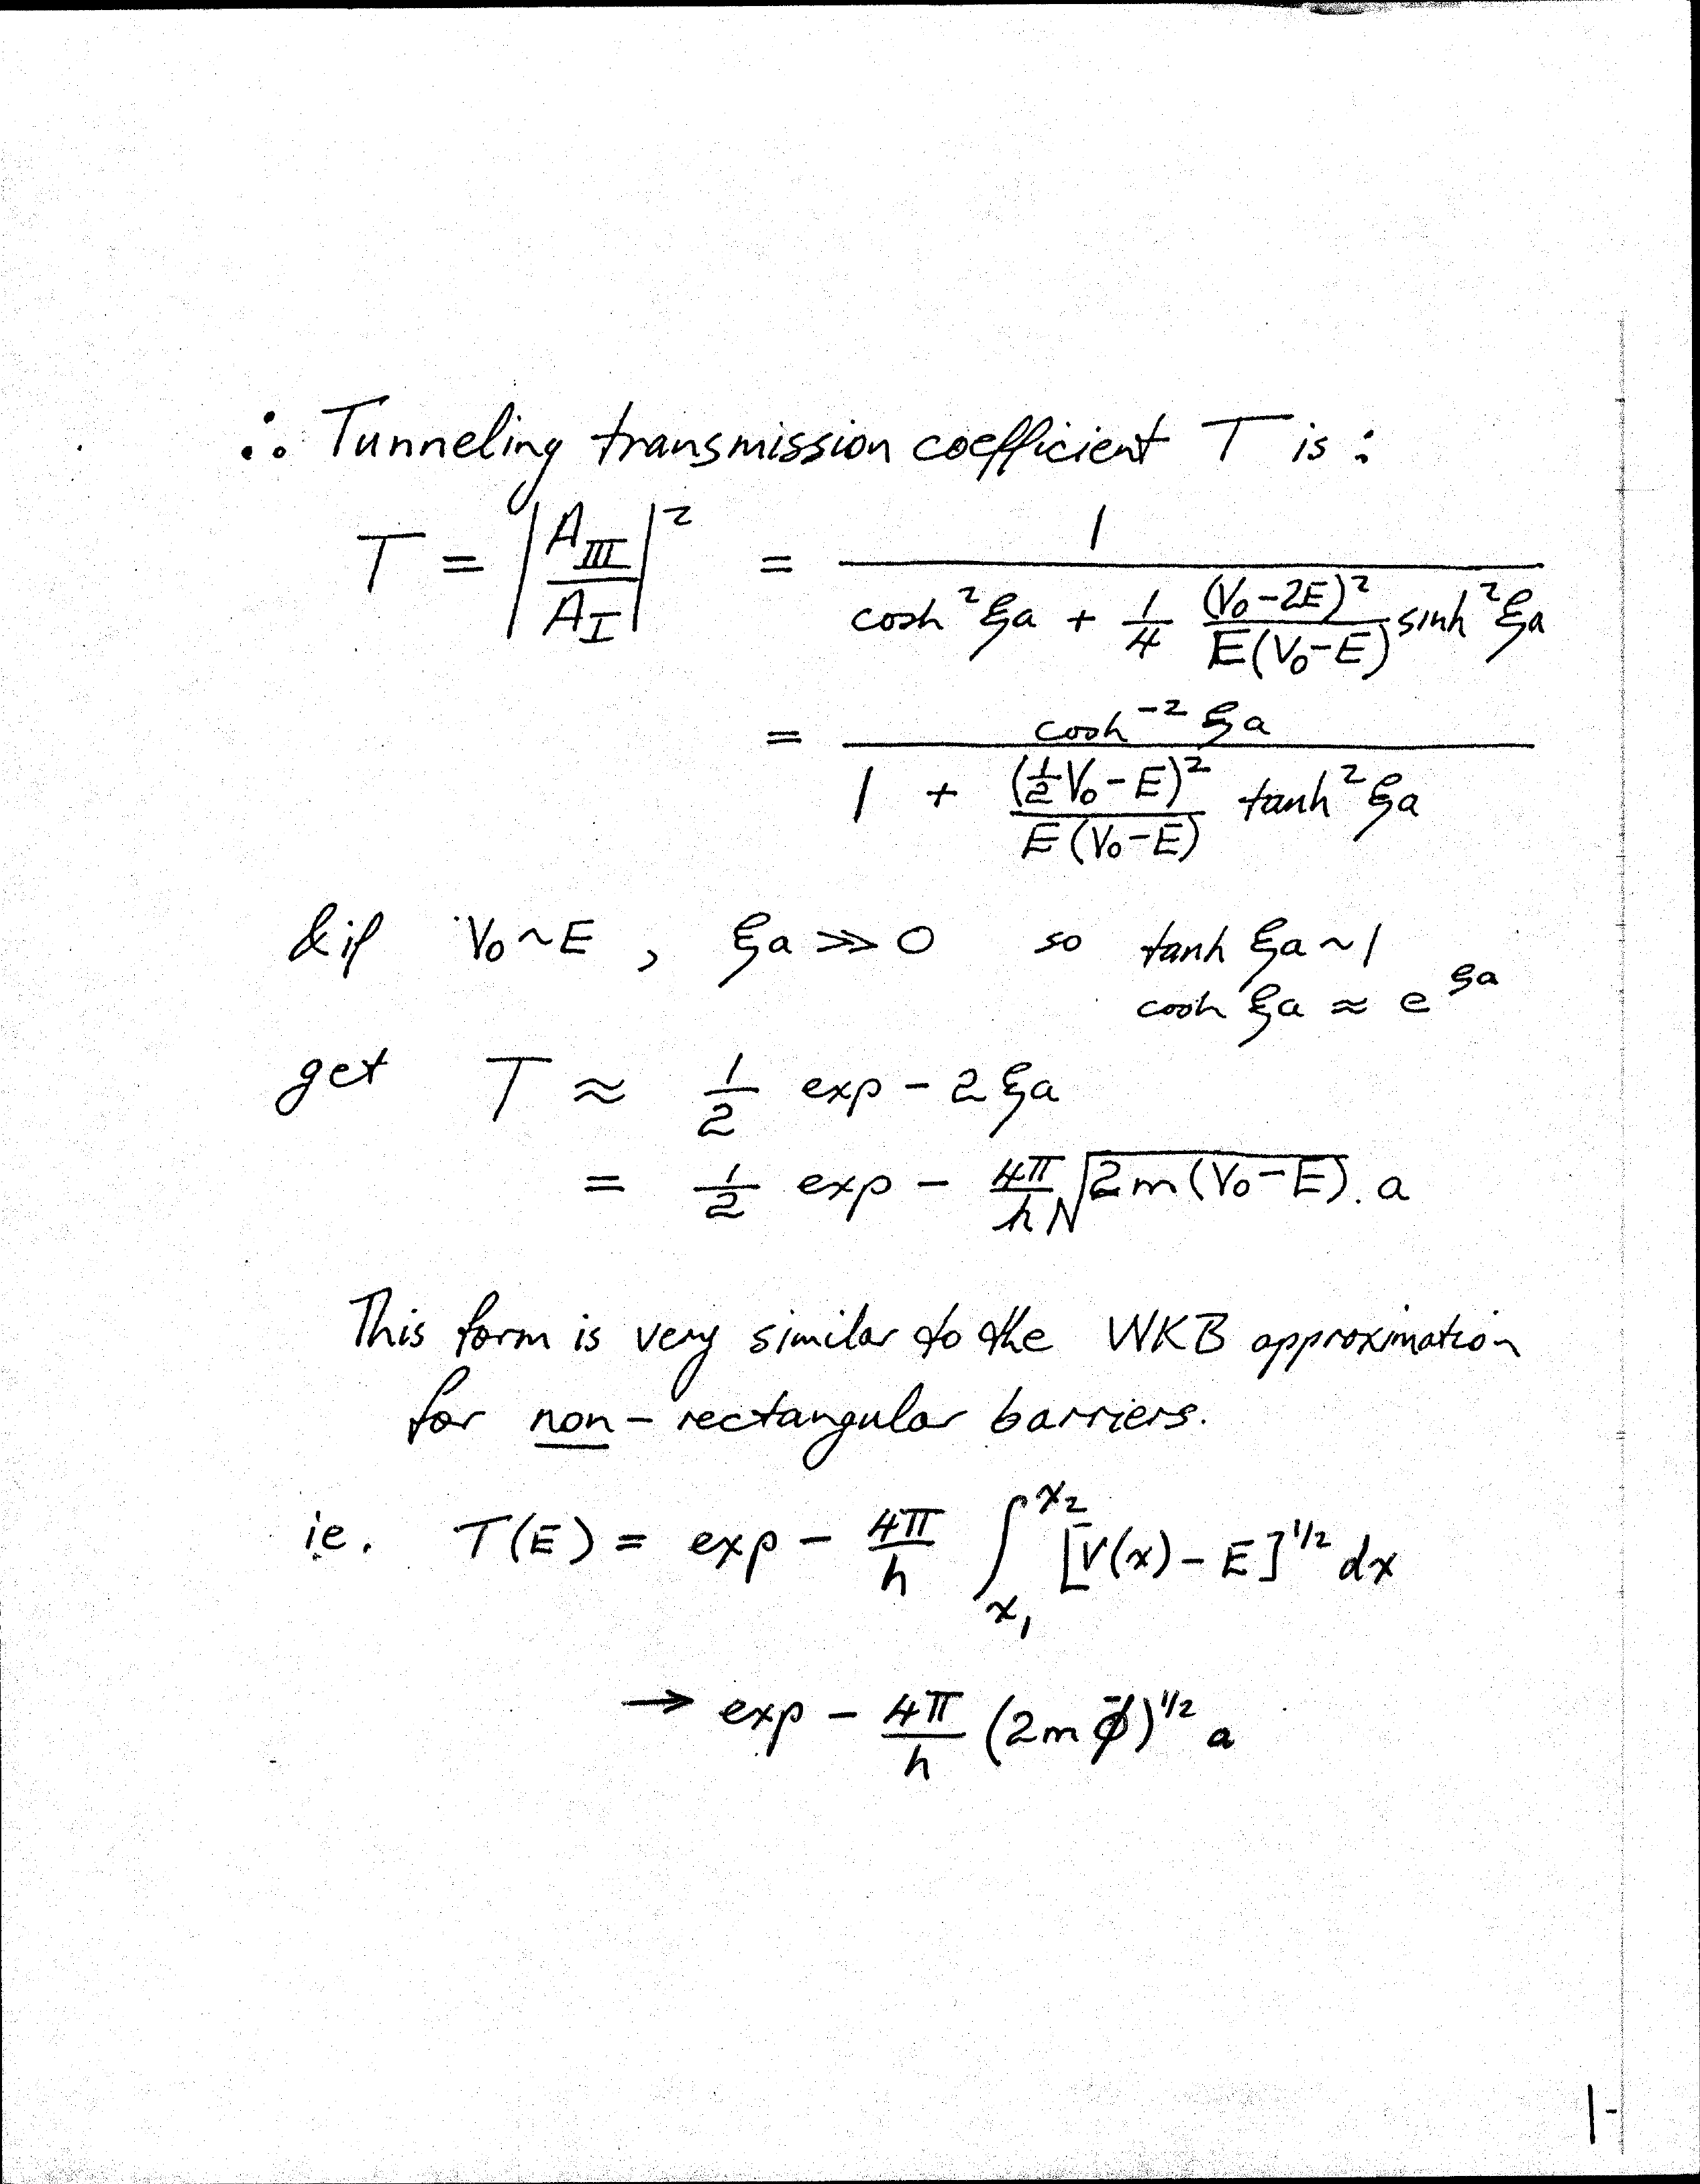 ∴ Tunneling transmission coefficient T is :
T = |A_III / A_I|² = 1 / (cosh² ξa + 1/4 (V₀-2E)² / E(V₀-E) sinh² ξa)
= cosh⁻² ξa / (1 + (½V₀-E)² / E(V₀-E) tanh² ξa)
& if V₀ ~ E , ξa >> 0 so tanh ξa ~ 1
cosh ξa ≈ e^ξa
get T ≈ 1/2 exp - 2ξa
= 1/2 exp - 4π/h √2m(V₀-E) . a
This form is very similar to the WKB approximation
for non-rectangular barriers.
i.e. T(E) = exp - 4π/h ∫_x₁^x₂ [V(x) - E]^1/2 dx
→ exp - 4π/h (2m φ̄)^1/2 a
1-